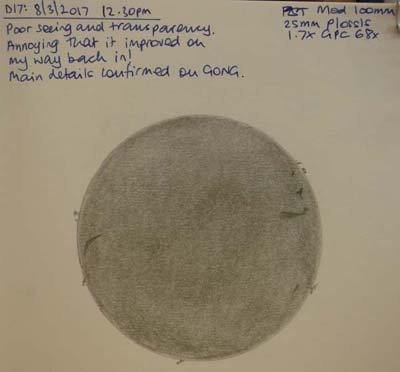 D17: 8/3/2017 12.30pm
Poor seeing and transparency.
Annoying That it improved on
my way back in!
Main details confirmed on GONG.
PST Mod 100mm
25mm Plossls
1.7x GPC 68x